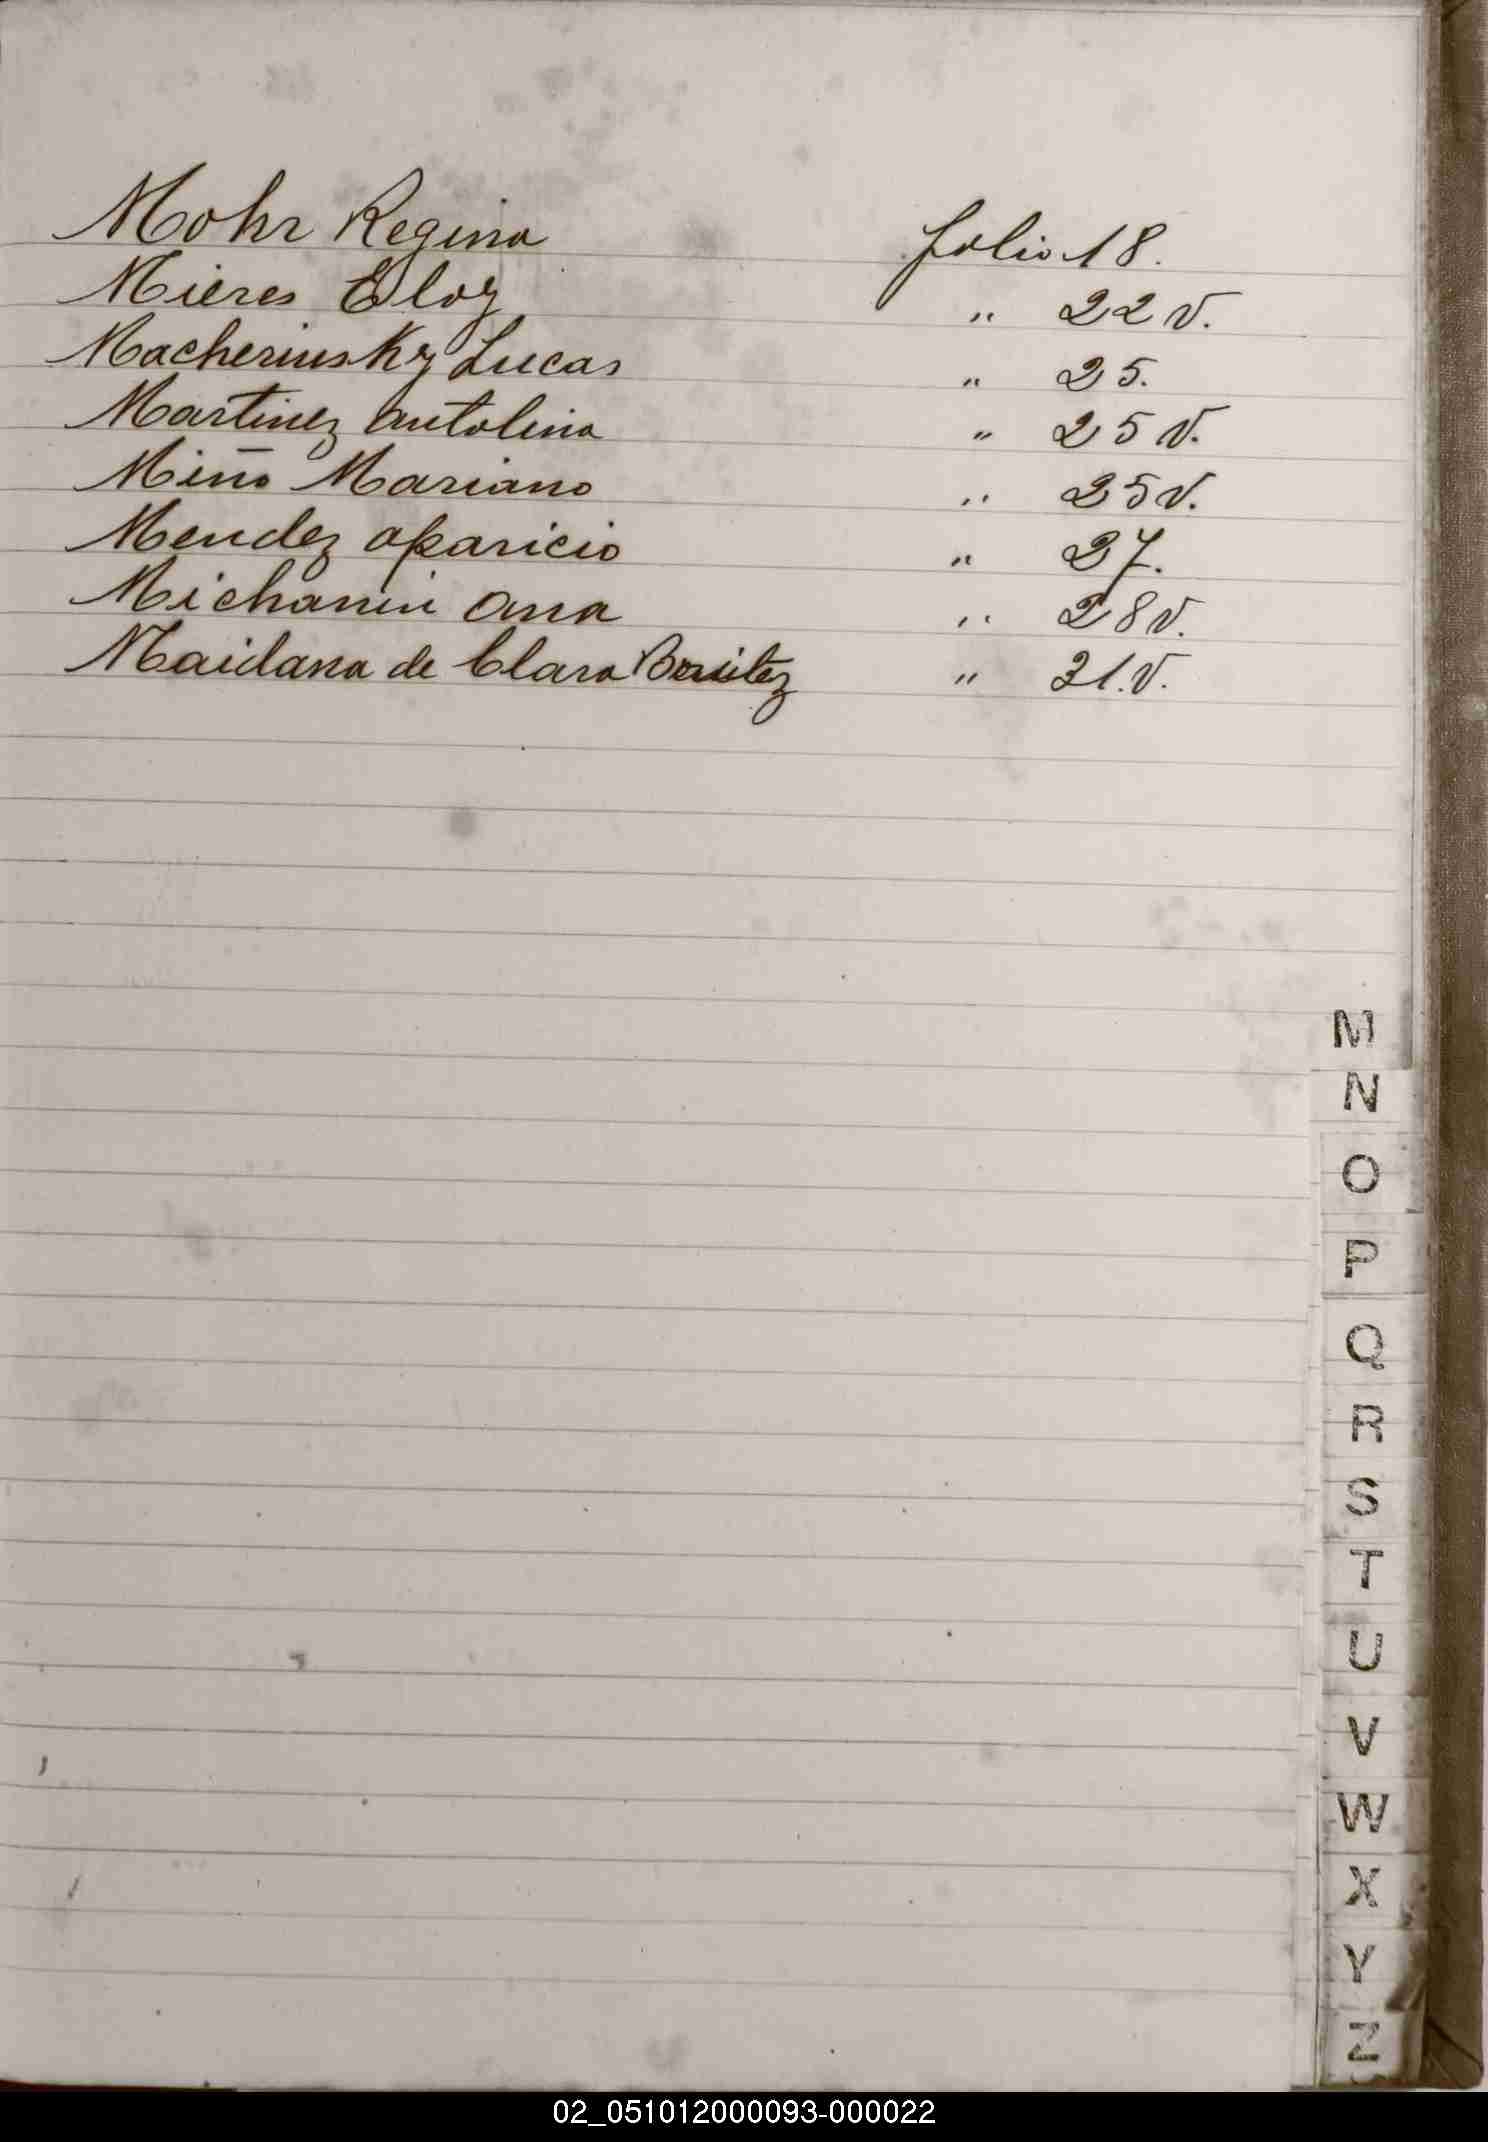 Mohr Regina folio 18.
Mieres Eloy " 22 v.
Macheriusky Lucas " 25.
Martinez Antolina " 25 v.
Miño Mariano " 25 v.
Mendez aparicio " 27.
Michanin Ana " 28 v.
Maidana de Clara Benitez " 31. v.
M
N
O
P
Q
R
S
T
U
V
W
X
Y
Z
02_051012000093-000022